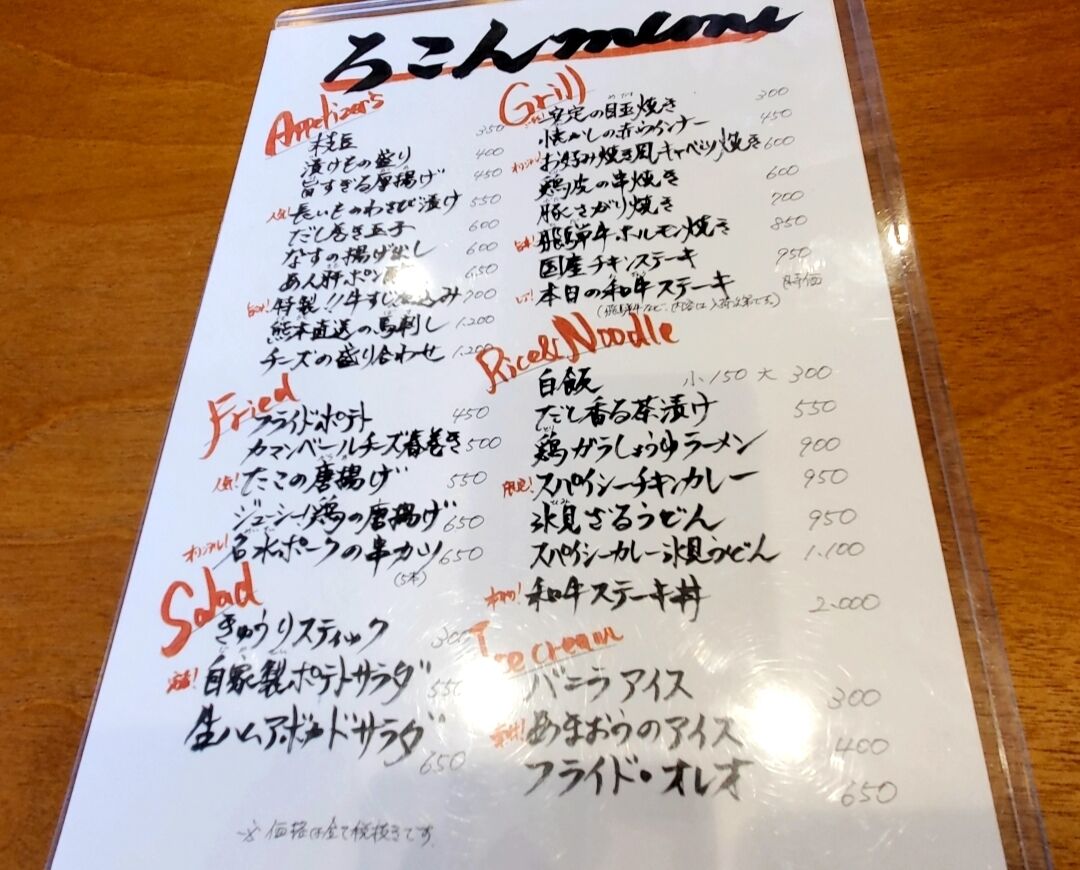 ろこんmenu
Appetizers
枝豆 350
漬けもの盛り 400
旨すぎる唐揚げ 450
人気! 長いものわさび漬け 550
だし巻き玉子 600
なすの揚げ出し 600
あん肝ポン酢 650
特製!!牛すじ煮込み 700
熊本直送の馬刺し 1.200
チーズの盛り合わせ 1.200
Fried
フライドポテト 450
カマンベールチーズ春巻き 500
人気! たこの唐揚げ 550
ジューシー!鶏の唐揚げ 650
オリジナル! 名水ポークの串カツ 650
(5本)
Salad
きゅうりスティック 300
自家製ポテトサラダ 550
生ハムアボカドサラダ
650
Grill
安定の目玉焼き 300
懐かしの赤ウインナー 450
オリジナル! お好み焼き風キャベツ焼き 600
鶏皮の串焼き 600
豚さがり焼き 700
飛騨牛ホルモン焼き 850
国産チキンステーキ 950
本日の和牛ステーキ 時価
Rice&Noodle
白飯 小150 大300
だし香る茶漬け 550
鶏ガラしょうゆラーメン 900
限定! スパイシーチキンカレー 950
氷見ざるうどん 950
スパイシーカレー氷見うどん 1.100
和牛ステーキ丼 2.000
Ice cream
バニラアイス 300
あまおうのアイス 400
フライド・オレオ 650
※価格は全て税抜きです。